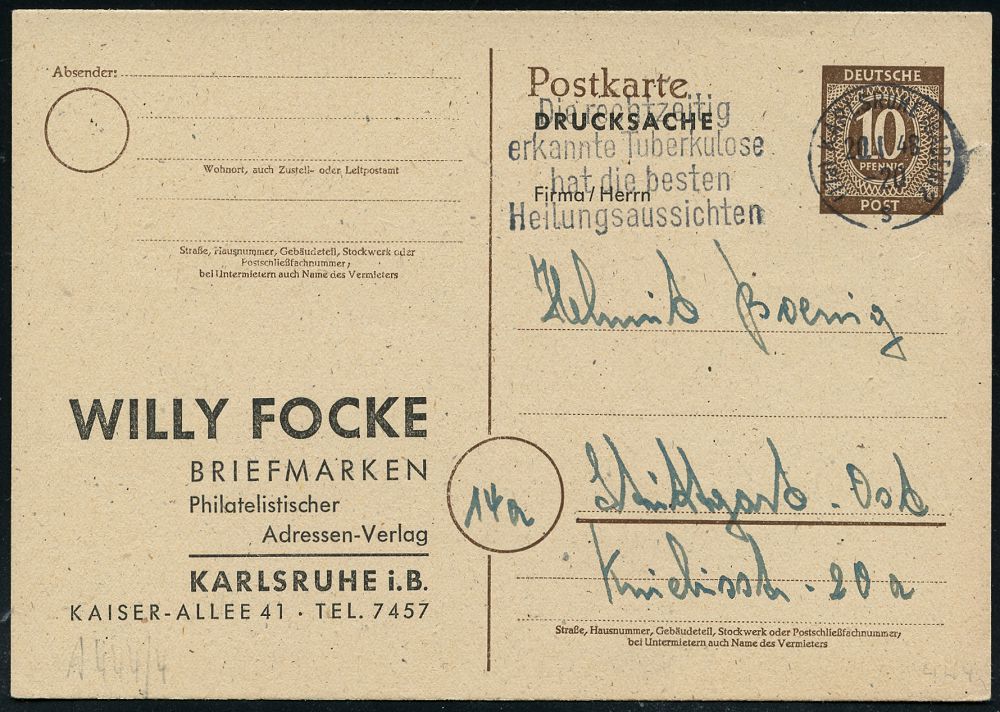 Absender:
Wohnort, auch Zustell- oder Leitpostamt
Straße, Hausnummer, Gebäudeteil, Stockwerk oder
Postschließfachnummer;
bei Untermietern auch Name des Vermieters
WILLY FOCKE
BRIEFMARKEN
Philatelistischer
Adressen-Verlag
KARLSRUHE i.B.
KAISER-ALLEE 41 · TEL. 7457
A 444/4
Postkarte
DRUCKSACHE
Die rechtzeitig
erkannte Tuberkulose
hat die besten
Heilungsaussichten
Firma/Herrn
DEUTSCHE
10
PFENNIG
POST
20
s
Helmut
14a
Stuttgart - Ost
20a
Straße, Hausnummer, Gebäudeteil, Stockwerk oder Postschließfachnummer;
bei Untermietern auch Name des Vermieters